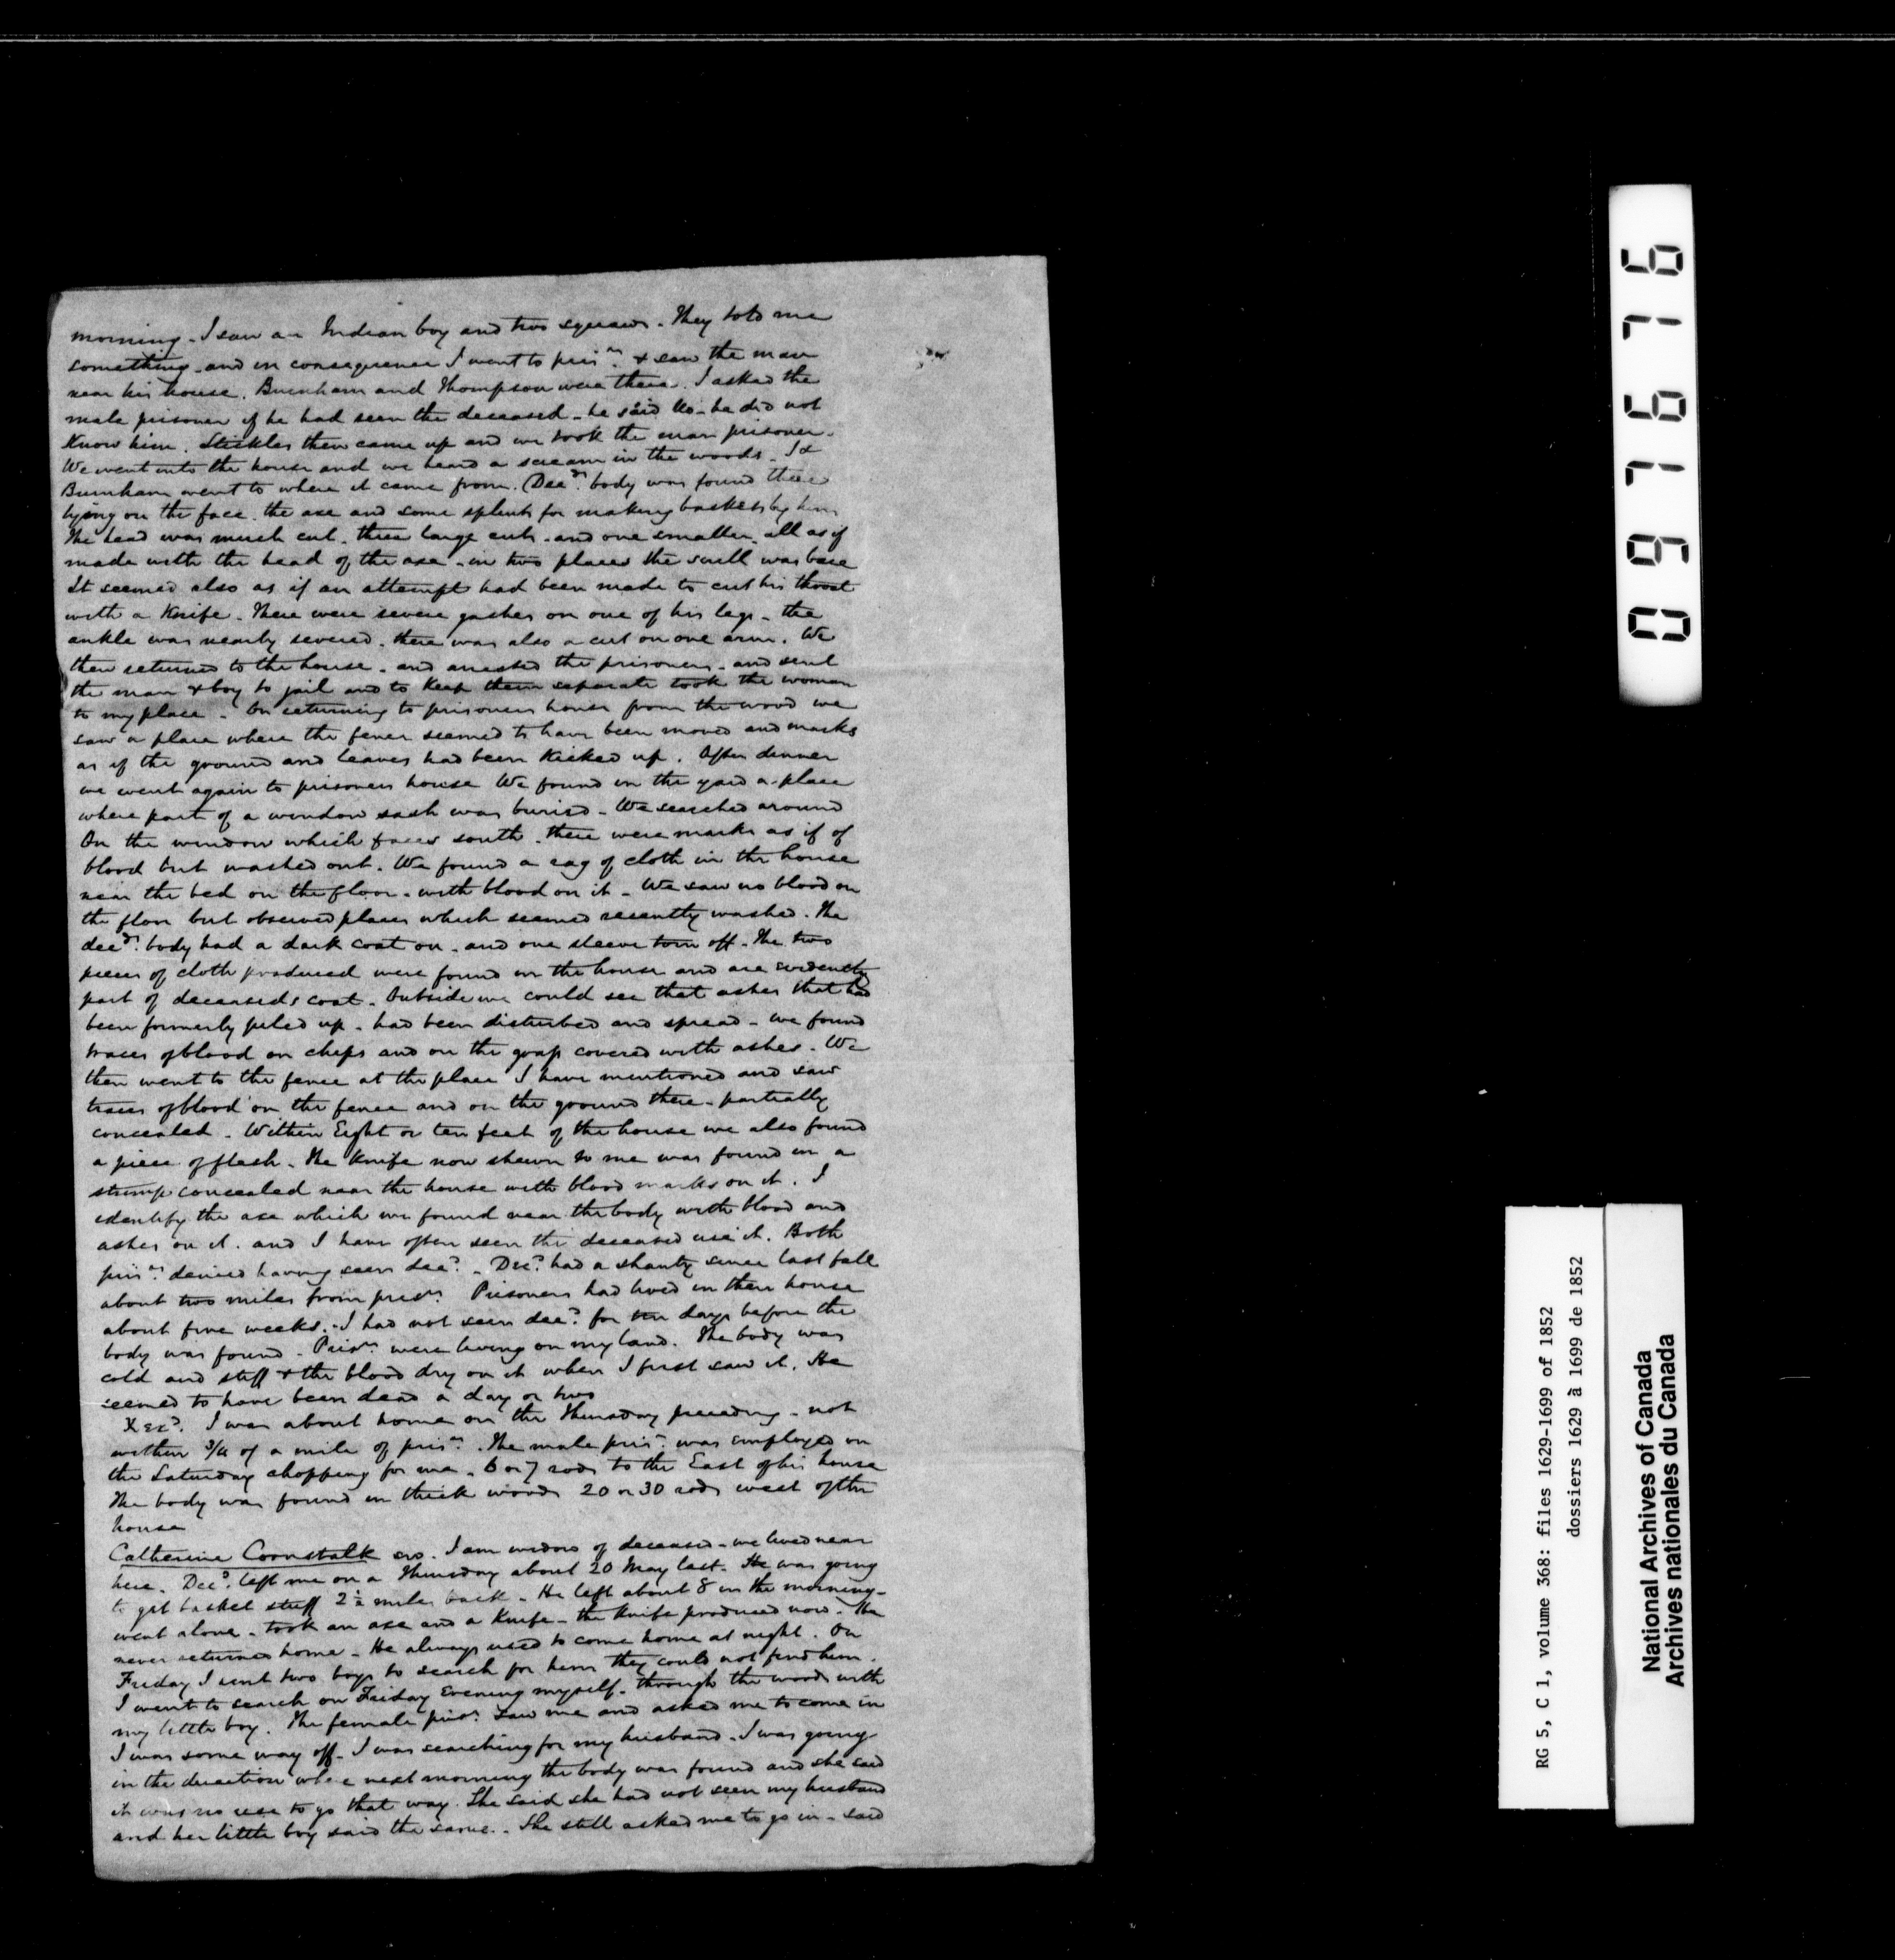 morning - I saw an Indian boy and two squaws. They told me
something - and in consequence I went to prisrs & saw the man
near his house. Burnham and Thompson were there. I asked the
male prisoner if he had seen the deceased - he said No - he did not
Know him. Stickles then came up and we took the man prisoner.
We went into the house and we heard a scream in the woods - I &
Burnham went to where it came from. (Decds body was found there
lying on the face. the axe and some splints for making baskets by him
The head was much cut. three large cuts - and one smaller. all as if
made with the head of the axe - in two places the scull was bare
It seemed also as if an attempt had been made to cut his throat
with a Knife. There were severe gashes on one of his legs - the
ankle was nearly severed. there was also a cut on one arm. We
then returned to the house - and arrested the prisoners - and sent
the man & boy to jail and to Keep them separate took the woman
to my place - On returning to prisoners house from the wood we
saw a place where the fence seemed to have been moved and marks
as if the ground and leaves had been Kicked up. After dinner
we went again to prisoners house We found in the yard a place
where part of a window sash was buried - We searched around
On the window which faces south. there were marks as if of
blood but washed out. We found a rag of cloth in the house
near the bed on the floor - with blood on it - We saw no blood on
the floor but observed places which seemed recently washed. The
decds body had a dark coat on - and one sleeve torn off - The two
pieces of cloth produced were found in the house and are evidently
part of deceaseds coat - Outside we could see that ashes that had
been formerly piled up - had been disturbed and spread - we found
traces of blood on chips and on the grass covered with ashes. We
then went to the fence at the place I have mentioned and saw
traces of blood on the fence and on the ground there - partially
concealed - Within Eight or ten feet of the house we also found
a piece of flesh - The Knife now shewn to me was found in a
stump concealed near the house with blood marks on it. I
identify the axe which we found near the body with blood and
ashes on it. and I have often seen the deceased use it. Both
prisrs denied having seen decd - Decd had a shanty since last fall
about two miles from prisrs Prisoners had lived in their house
about five weeks - I had not seen decd for ten days before the
body was found - Prisrs were living on my land. The body was
cold and stiff & the blood dry on it when I first saw it. He
seemed to have been dead a day or two
X exd. I was about home on the Thursday preceding - not
within 3/4 of a mile of prisrs. The male prisr was employed on
the Saturday chopping for me - 6 or 7 rods to the East of his house
The body was found in thick woods 20 or 30 rods west of the
house
Catherine Cornstalk sw. I am widow of deceased - we lived near
here. Decd left me on a Thursday about 20 May last. He was going
to get basket stuff 2½ miles back - He left about 8 in the morning -
went alone - took an axe and a Knife - the Knife produced now. He
never returned home - He always used to come home at night. On
Friday I sent two boys to search for him they could not find him.
I went to search on Friday Evening myself - through the woods with
my little boy. The female prisr saw me and asked me to come in
I was some way off - I was searching for my husband - I was going
in the direction where next morning the body was found and she said
it was no use to go that way. She said she had not seen my husband
and her little boy said the same. - She still asked me to go in - said
097676
RG 5, C 1, volume 368: files 1629-1699 of 1852
dossiers 1629 à 1699 de 1852
National Archives of Canada
Archives nationales du Canada